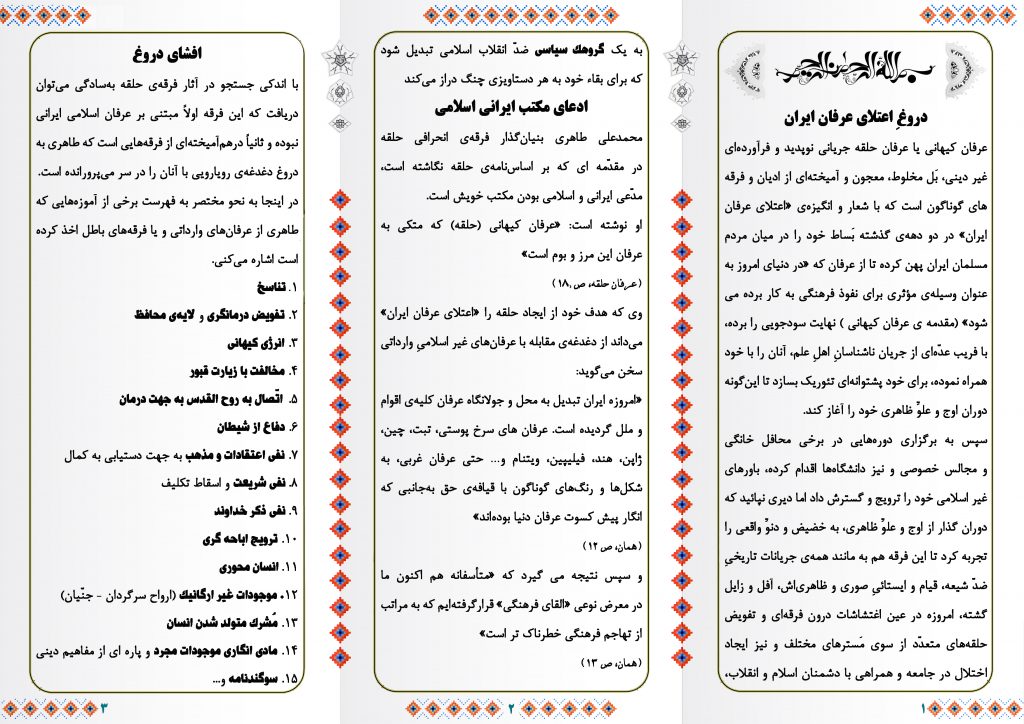 بسم الله الرحمن الرحیم
دروغِ اعتلای عرفان ایران
عرفان کیهانی یا عرفان حلقه جریانی نوپدید و فرآورده‌ای
غیر دینی، بَل مخلوط، معجون و آمیخته‌ای از ادیان و فرقه
های گوناگون است که با شعار و انگیزه‌ی «اعتلای عرفان
ایران» در دو دهه‌ی گذشته بَساط خود را در میان مردم
مسلمان ایران پهن کرده تا از عرفان که «در دنیای امروز به
عنوان وسیله‌ی مؤثری برای نفوذ فرهنگی به کار برده می
شود» (مقدمه ی عرفان کیهانی ) نهایت سودجویی را برده،
با فریب عدّه‌ای از جریان ناشناسانِ اهلِ علم، آنان را با خود
همراه نموده، برای خود پشتوانه‌ای تئوریک بسازد تا این‌گونه
دوران اوج و علوّ ظاهری خود را آغاز کند.
سپس به برگزاری دوره‌هایی در برخی محافل خانگی
و مجالس خصوصی و نیز دانشگاه‌ها اقدام کرده، باورهای
غیر اسلامی خود را ترویج و گسترش داد اما دیری نپائید که
دوران گذار از اوج و علوِّ ظاهری، به خضیض و دنوِّ واقعی را
تجربه کرد تا این فرقه هم به مانند همه‌ی جریانات تاریخیِ
ضدّ شیعه، قیام و ایستائیِ صوری و ظاهری‌اش، آفل و زایل
گشته، امروزه در عین اغتشاشات درون فرقه‌ای و تفویض
حلقه‌های متعدّد از سوی مَسترهای مختلف و نیز ایجاد
اختلال در جامعه و همراهی با دشمنان اسلام و انقلاب،
۱
به یک گروهك سیاسی ضدّ انقلاب اسلامی تبدیل شود
که برای بقاء خود به هر دستاویزی چنگ دراز می‌کند
ادعای مکتب ایرانی اسلامی
محمدعلی طاهری بنیان‌گذار فرقه‌ی انحرافی حلقه
در مقدّمه ای که بر اساس‌نامه‌ی حلقه نگاشته است،
مدّعی ایرانی و اسلامی بودن مکتب خویش است.
او نوشته است: «عرفان کیهانی (حلقه) که متکی به
عرفان این مرز و بوم است»
(عرفان حلقه، ص ۱۸،)
وی که هدف خود از ایجاد حلقه را «اعتلای عرفان ایران»
می‌داند از دغدغه‌ی مقابله با عرفان‌های غیر اسلامیِ وارداتی
سخن می‌گوید:
«امروزه ایران تبدیل به محل و جولانگاه عرفان کلیه‌ی اقوام
و ملل گردیده است. عرفان های سرخ پوستی، تبت، چین،
ژاپن، هند، فیلیپین، ویتنام و... حتی عرفان غربی، به
شکل‌ها و رنگ‌های گوناگون با قیافه‌ی حق به‌جانبی که
انگار پیش کسوت عرفان دنیا بوده‌اند»
(همان، ص ۱۲)
و سپس نتیجه می گیرد که «متأسفانه هم اکنون ما
در معرض نوعی «القای فرهنگی» قرارگرفته‌ایم که به مراتب
از تهاجم فرهنگی خطرناک تر است»
(همان، ص ۱۳)
۲
افشای دروغ
با اندکی جستجو در آثار فرقه‌ی حلقه به‌سادگی می‌توان
دریافت که این فرقه اولاً مبتنی بر عرفان اسلامی ایرانی
نبوده و ثانیاً درهم‌آمیخته‌ای از فرقه‌هایی است که طاهری به
دروغ دغدغه‌ی رویارویی با آنان را در سر می‌پرورانده است.
در اینجا به نحو مختصر به فهرست برخی از آموزه‌هایی که
طاهری از عرفان‌های وارداتی و یا فرقه‌های باطل اخذ کرده
است اشاره می‌کنی.
۱. تناسخ
۲. تفویض درمانگری و لایه‌ی محافظ
۳. انرژی کیهانی
۴. مخالفت با زیارت قبور
۵. اتّصال به روح القدس به جهت درمان
۶. دفاع از شیطان
۷. نفی اعتقادات و مذهب به جهت دستیابی به کمال
۸. نفی شریعت و اسقاط تکلیف
۹. نفی ذکر خداوند
۱۰. ترویج اباحه گری
۱۱. انسان محوری
۱۲. موجودات غیر ارگانیك (ارواح سرگردان - جنّیان)
۱۳. مُشرك متولد شدن انسان
۱۴. مادی انگاری موجودات مجرد و پاره ای از مفاهیم دینی
۱۵. سوگندنامه و...
۳